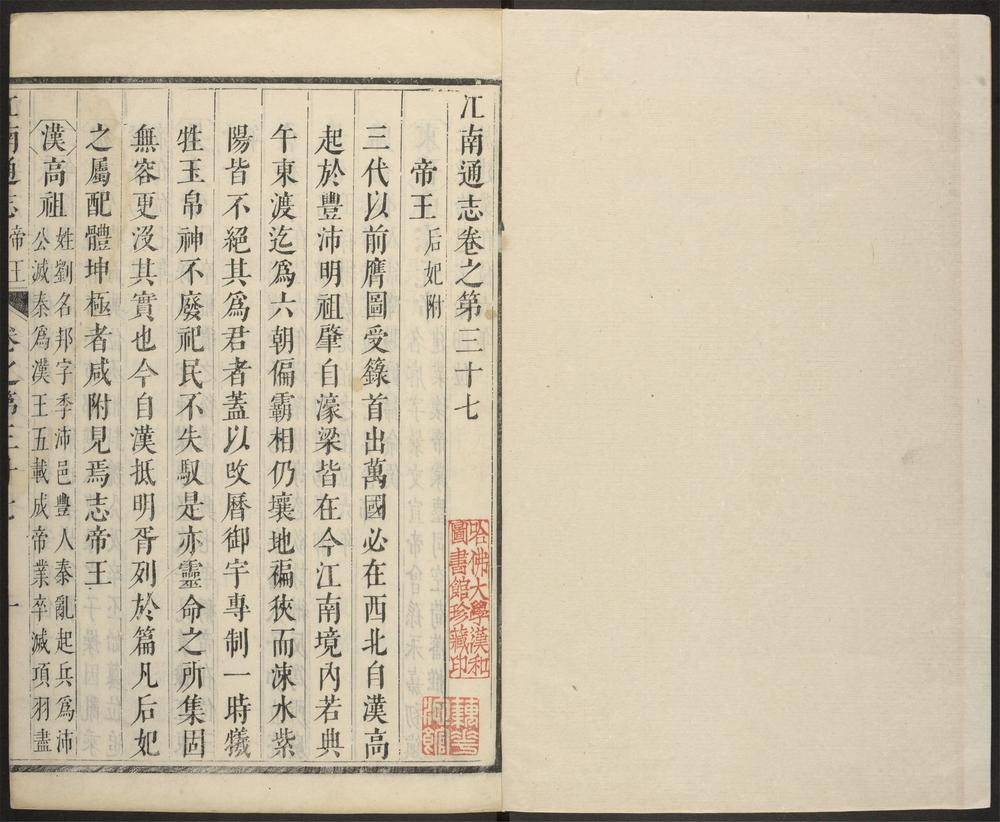 江南通志卷之第三十七
帝王 后妃附
三代以前膺圖受籙首出萬國必在西北自漢高
起於豐沛明祖肇自濠梁皆在今江南境內若典
午東渡迄為六朝偏霸相仍壤地褊狹而涑水紫
陽皆不絕其為君者蓋以改曆御宇專制一時犧
牲玉帛神不廢祀民不失馭是亦靈命之所集固
無容更沒其實也今自漢抵明胥列於篇凡后妃
之屬配體坤極者咸附見焉志帝王
漢高祖 姓劉名邦字季沛邑豐人秦亂起兵為沛
公滅秦為漢王五載成帝業卒滅項羽盡
江南通志 帝王 卷之第三十七 一
哈佛大學漢和
圖書館珍藏印